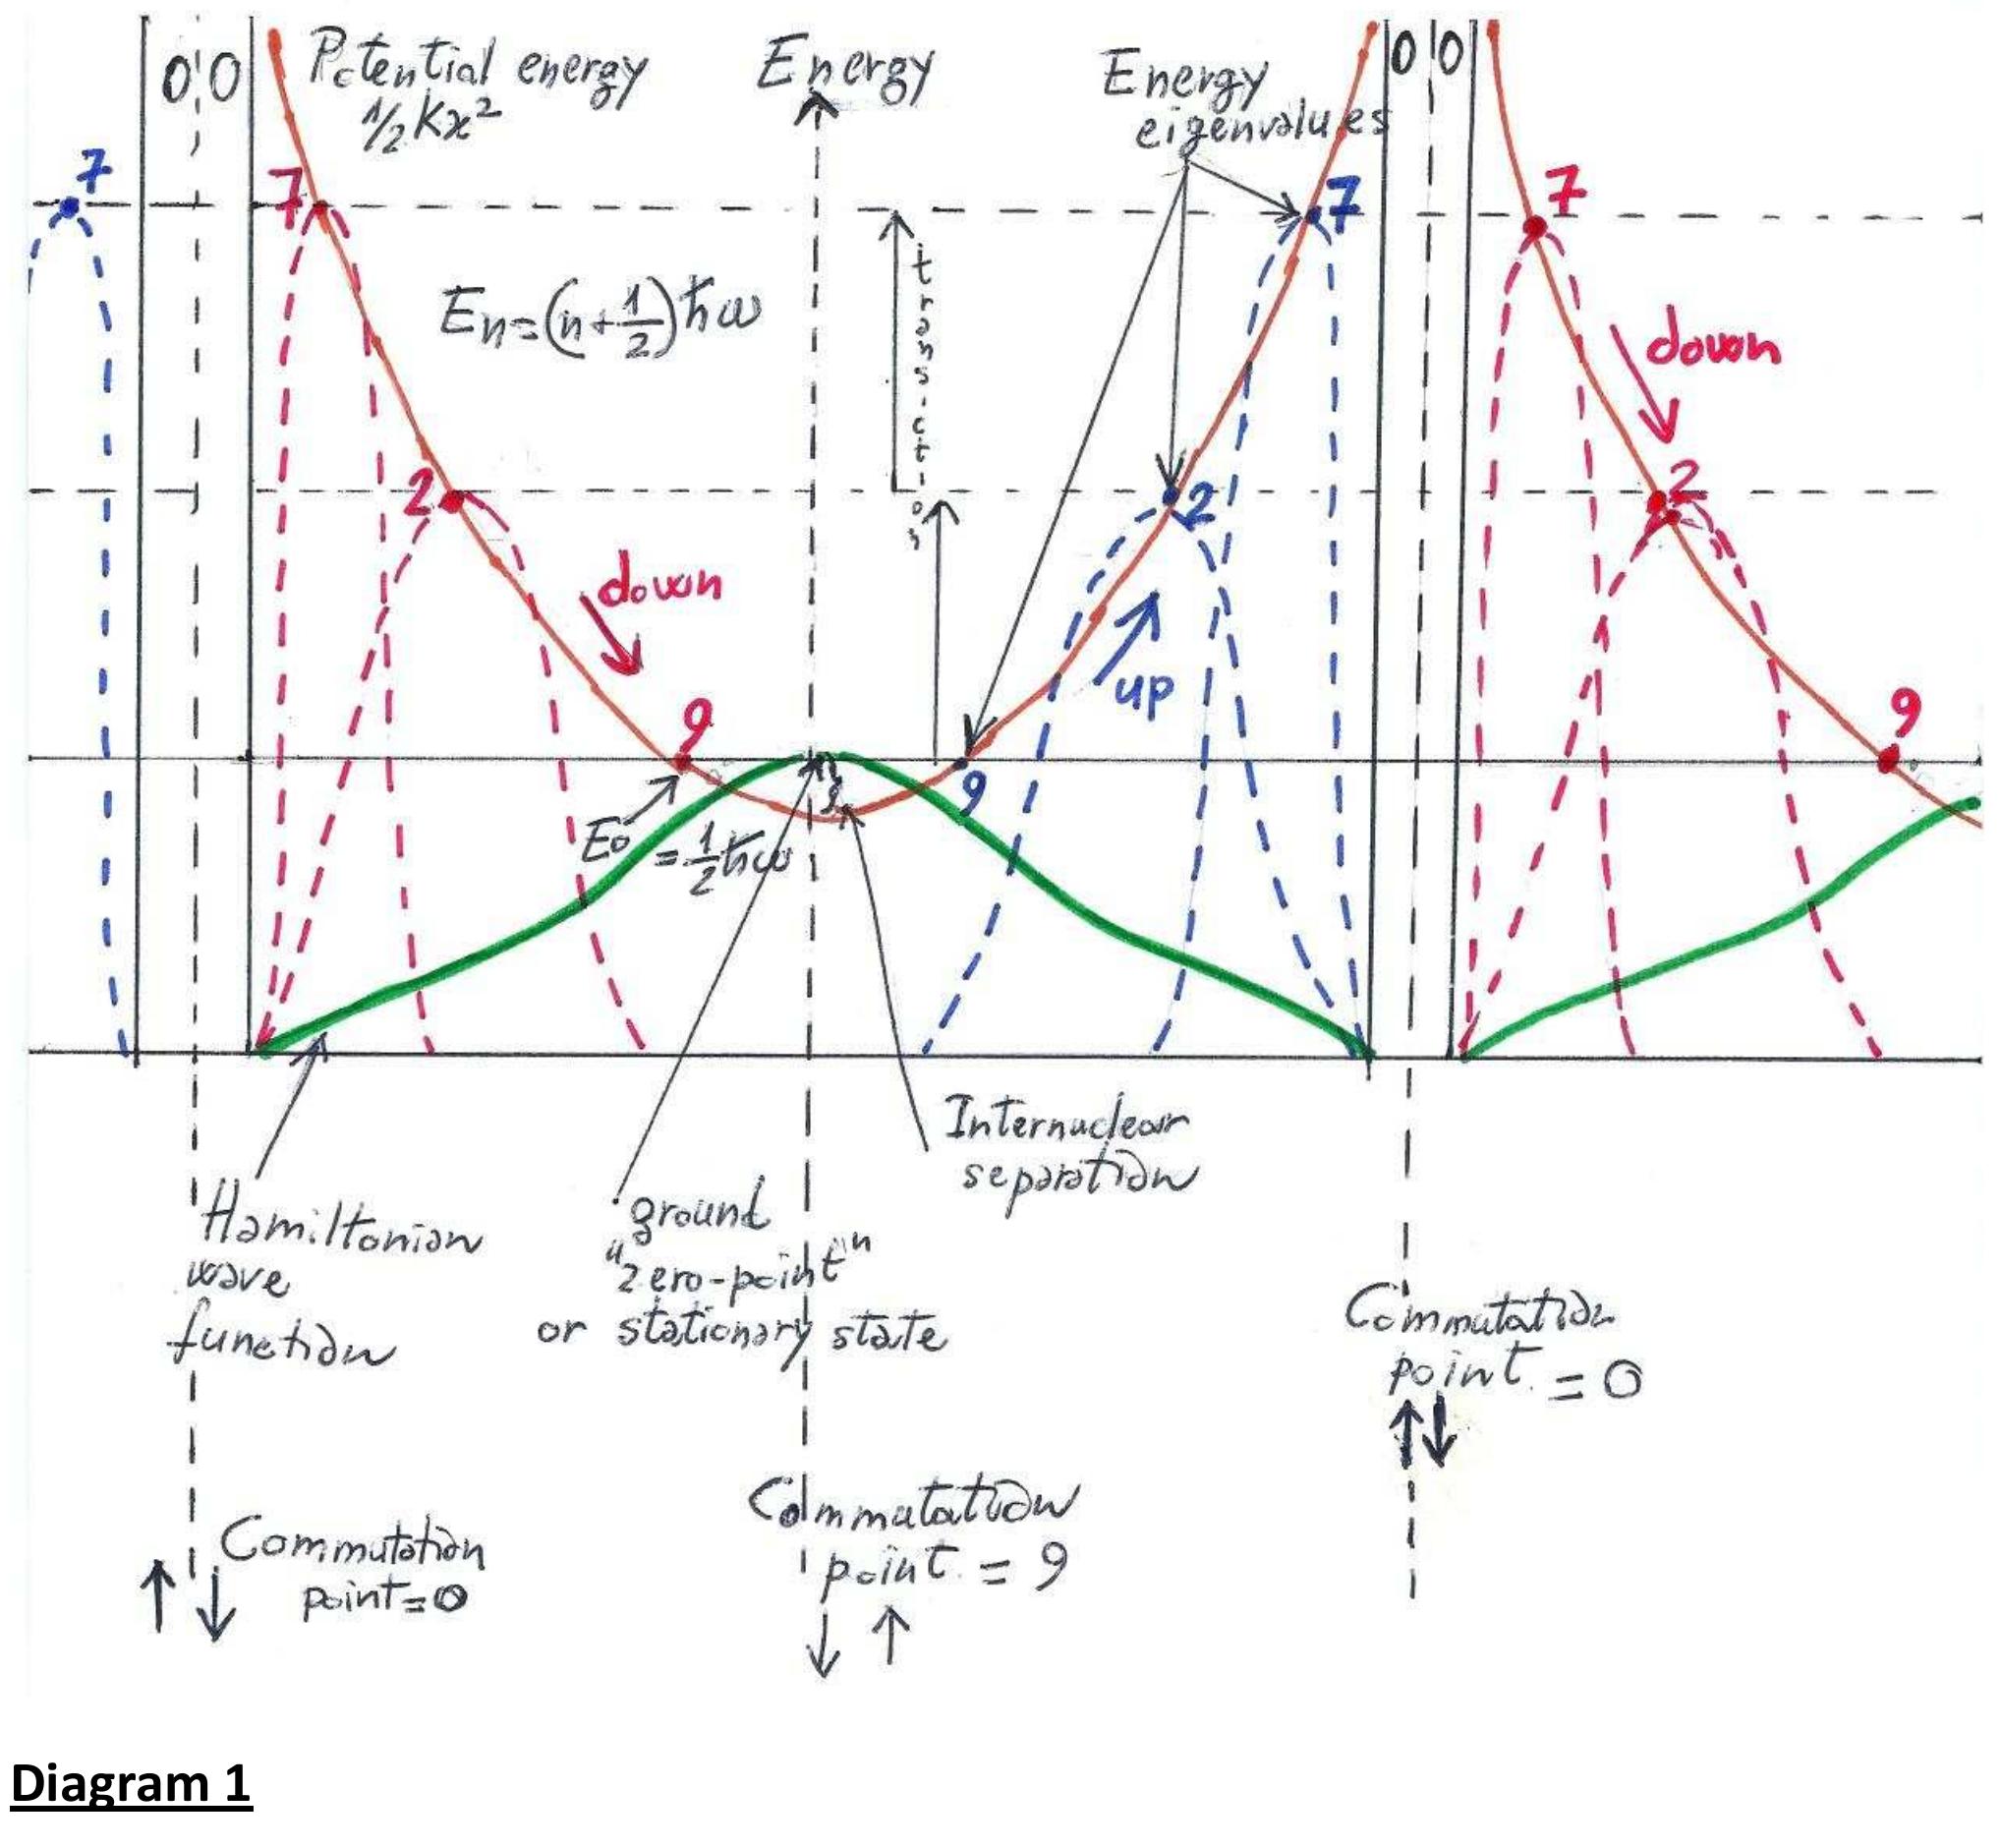 0 0
Potential energy
1/2 kx²
Energy
Energy
eigenvalues
0 0
7
7
7
7
En=(n+1/2)ħω
transiction
down
2
2
2
down
up
9
9
9
E0 = 1/2 ħω
9
Internuclear
separation
Hamiltonian
wave
function
ground
"zero-point"
or stationary state
Commutation
point = 0
↑↓
Commutation
point = 9
↓ ↑
Commutation
point = 0
↑ ↓
Diagram 1